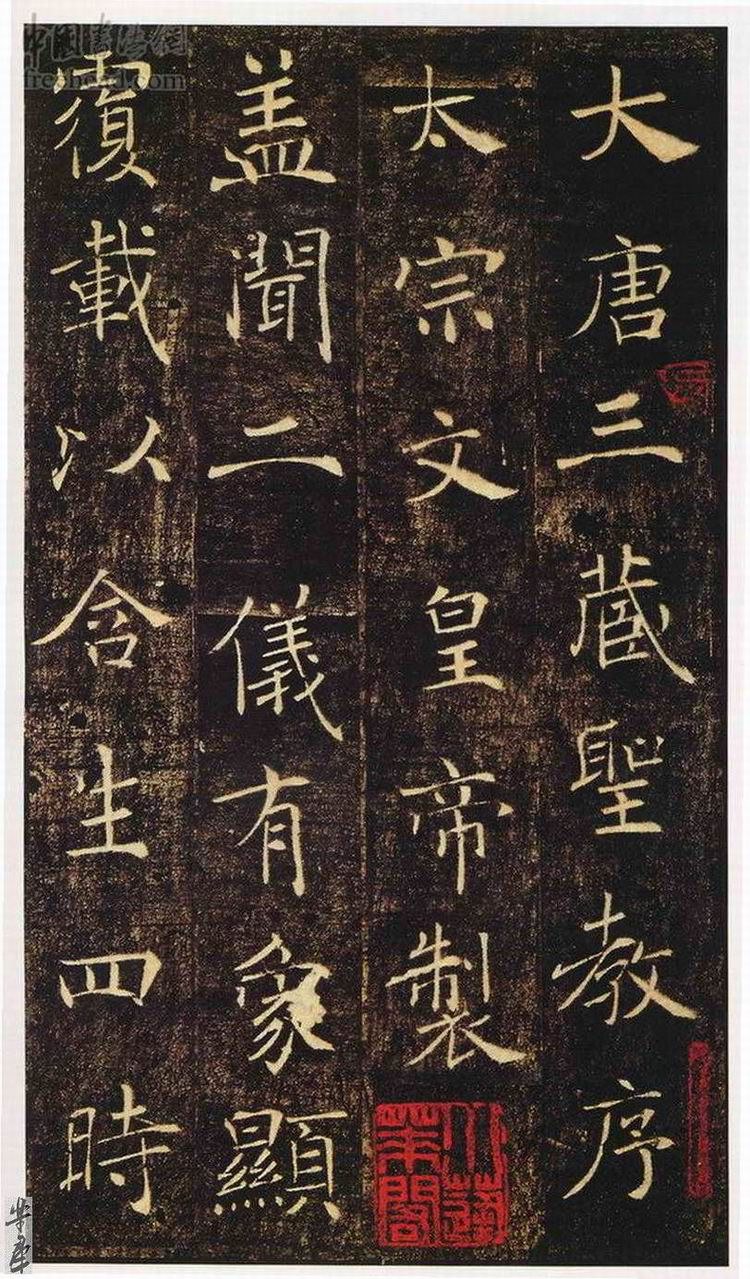 大唐三藏聖教序
太宗文皇帝製
盖聞二儀有象顯
覆載以含生四時
中国书法网
freehead.com